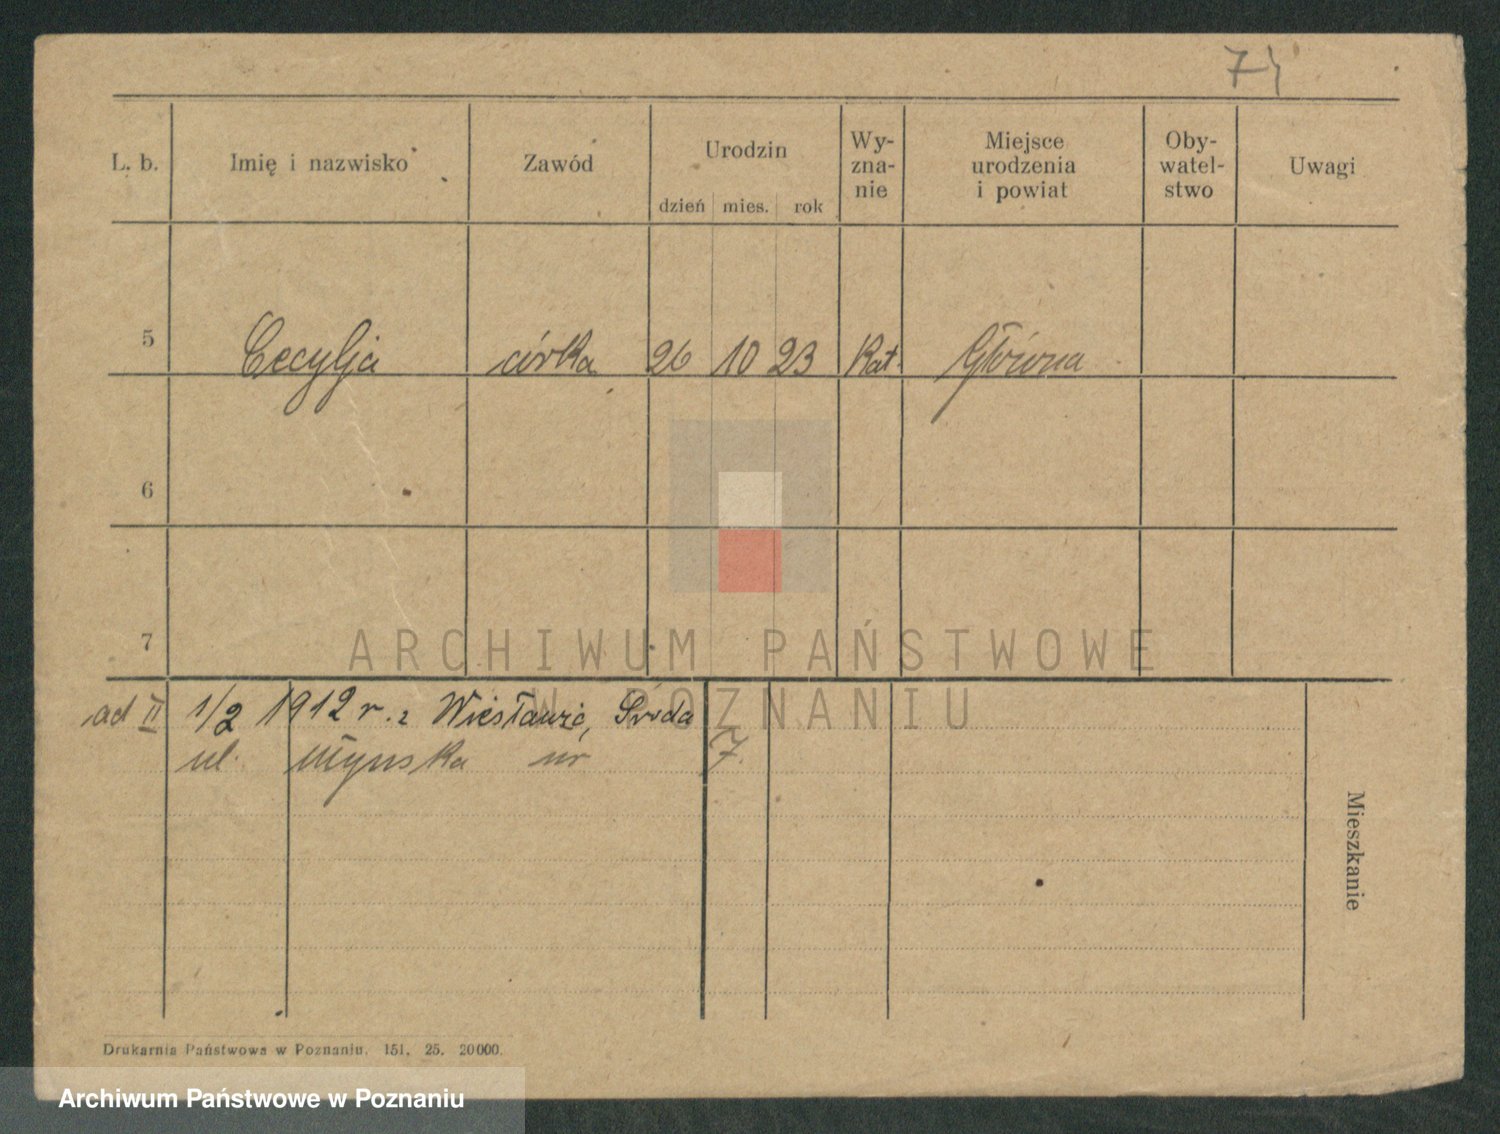 74
L. b. Imię i nazwisko Zawód Urodzin dzień mies. rok Wy-zna-nie Miejsce urodzenia i powiat Oby-watel-stwo Uwagi
5 Cecylja córka 26 10 23 Kat. Główna
6
7
ARCHIWUM PAŃSTWOWE
W POZNANIU
ad II 1/2 1912 r. z Środa
ul. Młyńska nr 7.
Mieszkanie
Drukarnia Państwowa w Poznaniu. 151. 25. 20000.
Archiwum Państwowe w Poznaniu